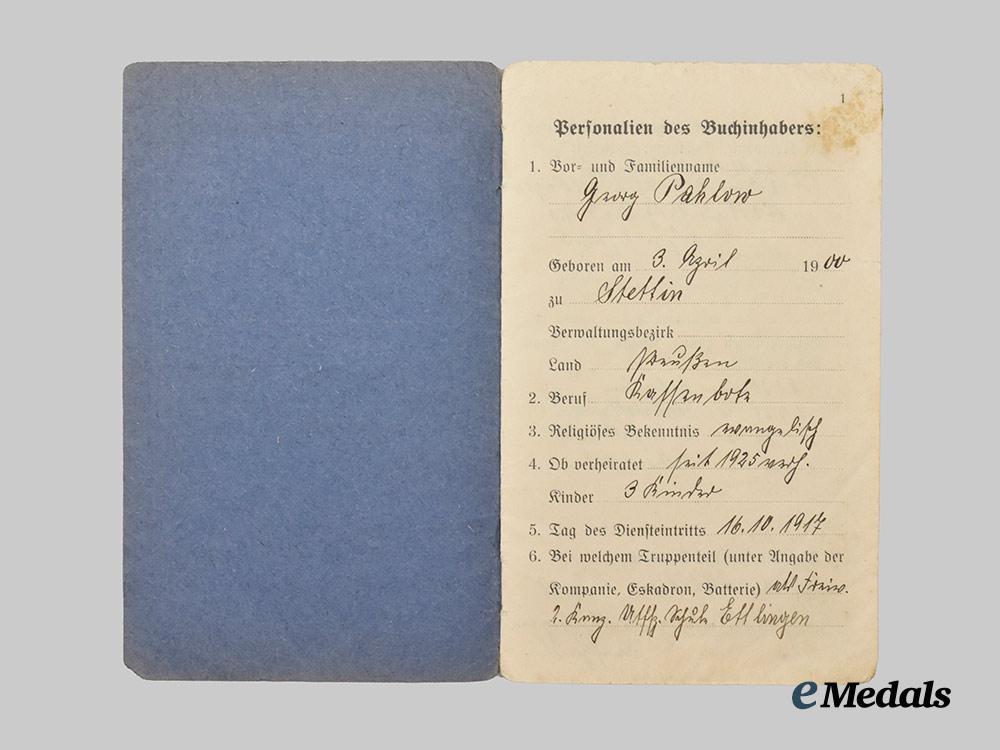 1
Personalien des Buchinhabers:
1. Vor- und Familienname
Georg Pahlow
Geboren am 3. April 1900
zu Stettin
Verwaltungsbezirk
Land Preußen
2. Beruf Kassenbote
3. Religiöses Bekenntnis evangelisch
4. Ob verheiratet seit 1925 verh.
Kinder 3 Kinder
5. Tag des Diensteintritts 16.10.1917
6. Bei welchem Truppenteil (unter Angabe der
Kompanie, Eskadron, Batterie) als Freiw.
2. Komp. Uffz. Schule Ettlingen
eMedals